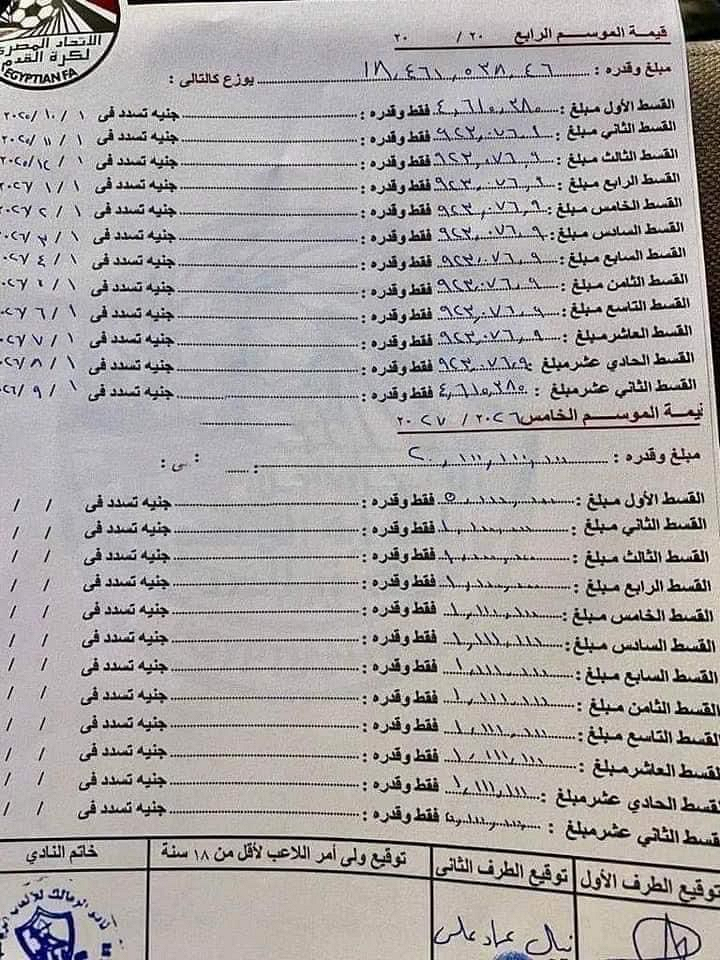 الاتحاد المصرى
لكرة القدم
EGYPTIAN FA
قيمة الموسم الرابع ٢٠ / ٢٠
مبلغ وقدره : ١٨,٤٦١,٥٣٨,٤٦ يوزع كالتالى :
القسط الأول مبلغ : ٤,٦١٥,٣٨٠ فقط وقدره : جنيه تسدد فى ١ / ١٠ / ٢٠٢٥
القسط الثاني مبلغ : ٩٢٣,٠٧٦,٩ فقط وقدره : جنيه تسدد فى ١ / ١١ / ٢٠٢٥
القسط الثالث مبلغ : ٩٢٣,٠٧٦,٩ فقط وقدره : جنيه تسدد فى ١ / ١٢ / ٢٠٢٥
القسط الرابع مبلغ : ٩٢٣,٠٧٦,٩ فقط وقدره : جنيه تسدد فى ١ / ١ / ٢٠٢٦
القسط الخامس مبلغ : ٩٢٣,٠٧٦,٩ فقط وقدره : جنيه تسدد فى ١ / ٢ / ٢٠٢٦
القسط السادس مبلغ : ٩٢٣,٠٧٦,٩ فقط وقدره : جنيه تسدد فى ١ / ٣ /
القسط السابع مبلغ : ٩٢٣,٠٧٦,٩ فقط وقدره : جنيه تسدد فى ١ / ٤ /
القسط الثامن مبلغ : ٩٢٣,٠٧٦,٩ فقط وقدره : جنيه تسدد فى ١ /
القسط التاسع مبلغ : ٩٢٣,٠٧٦,٩ فقط وقدره : جنيه تسدد فى ١ / ٦ /
القسط العاشر مبلغ : ٩٢٣,٠٧٦,٩ فقط وقدره : جنيه تسدد فى ١ / ٧ /
القسط الحادي عشر مبلغ : ٩٢٣,٠٧٦,٩ فقط وقدره : جنيه تسدد فى ١ / ٨ /
القسط الثاني عشر مبلغ : ٤,٦١٥,٣٨٠ فقط وقدره : جنيه تسدد فى ١ / ٩ /
قيمة الموسم الخامس ٢٠٢٦ / ٢٠٢٧
مبلغ وقدره : ٢٠,٠٠٠,٠٠٠,٠٠٠ :
القسط الأول مبلغ : فقط وقدره : جنيه تسدد فى / /
القسط الثاني مبلغ : فقط وقدره : جنيه تسدد فى / /
القسط الثالث مبلغ : فقط وقدره : جنيه تسدد فى / /
القسط الرابع مبلغ : فقط وقدره : جنيه تسدد فى / /
القسط الخامس مبلغ : فقط وقدره : جنيه تسدد فى / /
القسط السادس مبلغ : فقط وقدره : جنيه تسدد فى / /
القسط السابع مبلغ : فقط وقدره : جنيه تسدد فى / /
القسط الثامن مبلغ : فقط وقدره : جنيه تسدد فى / /
القسط التاسع مبلغ : فقط وقدره : جنيه تسدد فى / /
القسط العاشر مبلغ : فقط وقدره : جنيه تسدد فى / /
القسط الحادي عشر مبلغ : فقط وقدره : جنيه تسدد فى / /
القسط الثاني عشر مبلغ : فقط وقدره : جنيه تسدد فى / /
توقيع الطرف الأول توقيع الطرف الثانى توقيع ولى أمر اللاعب لأقل من ١٨ سنة خاتم النادي
نبيل عماد على
نادى الزمالك للألعاب